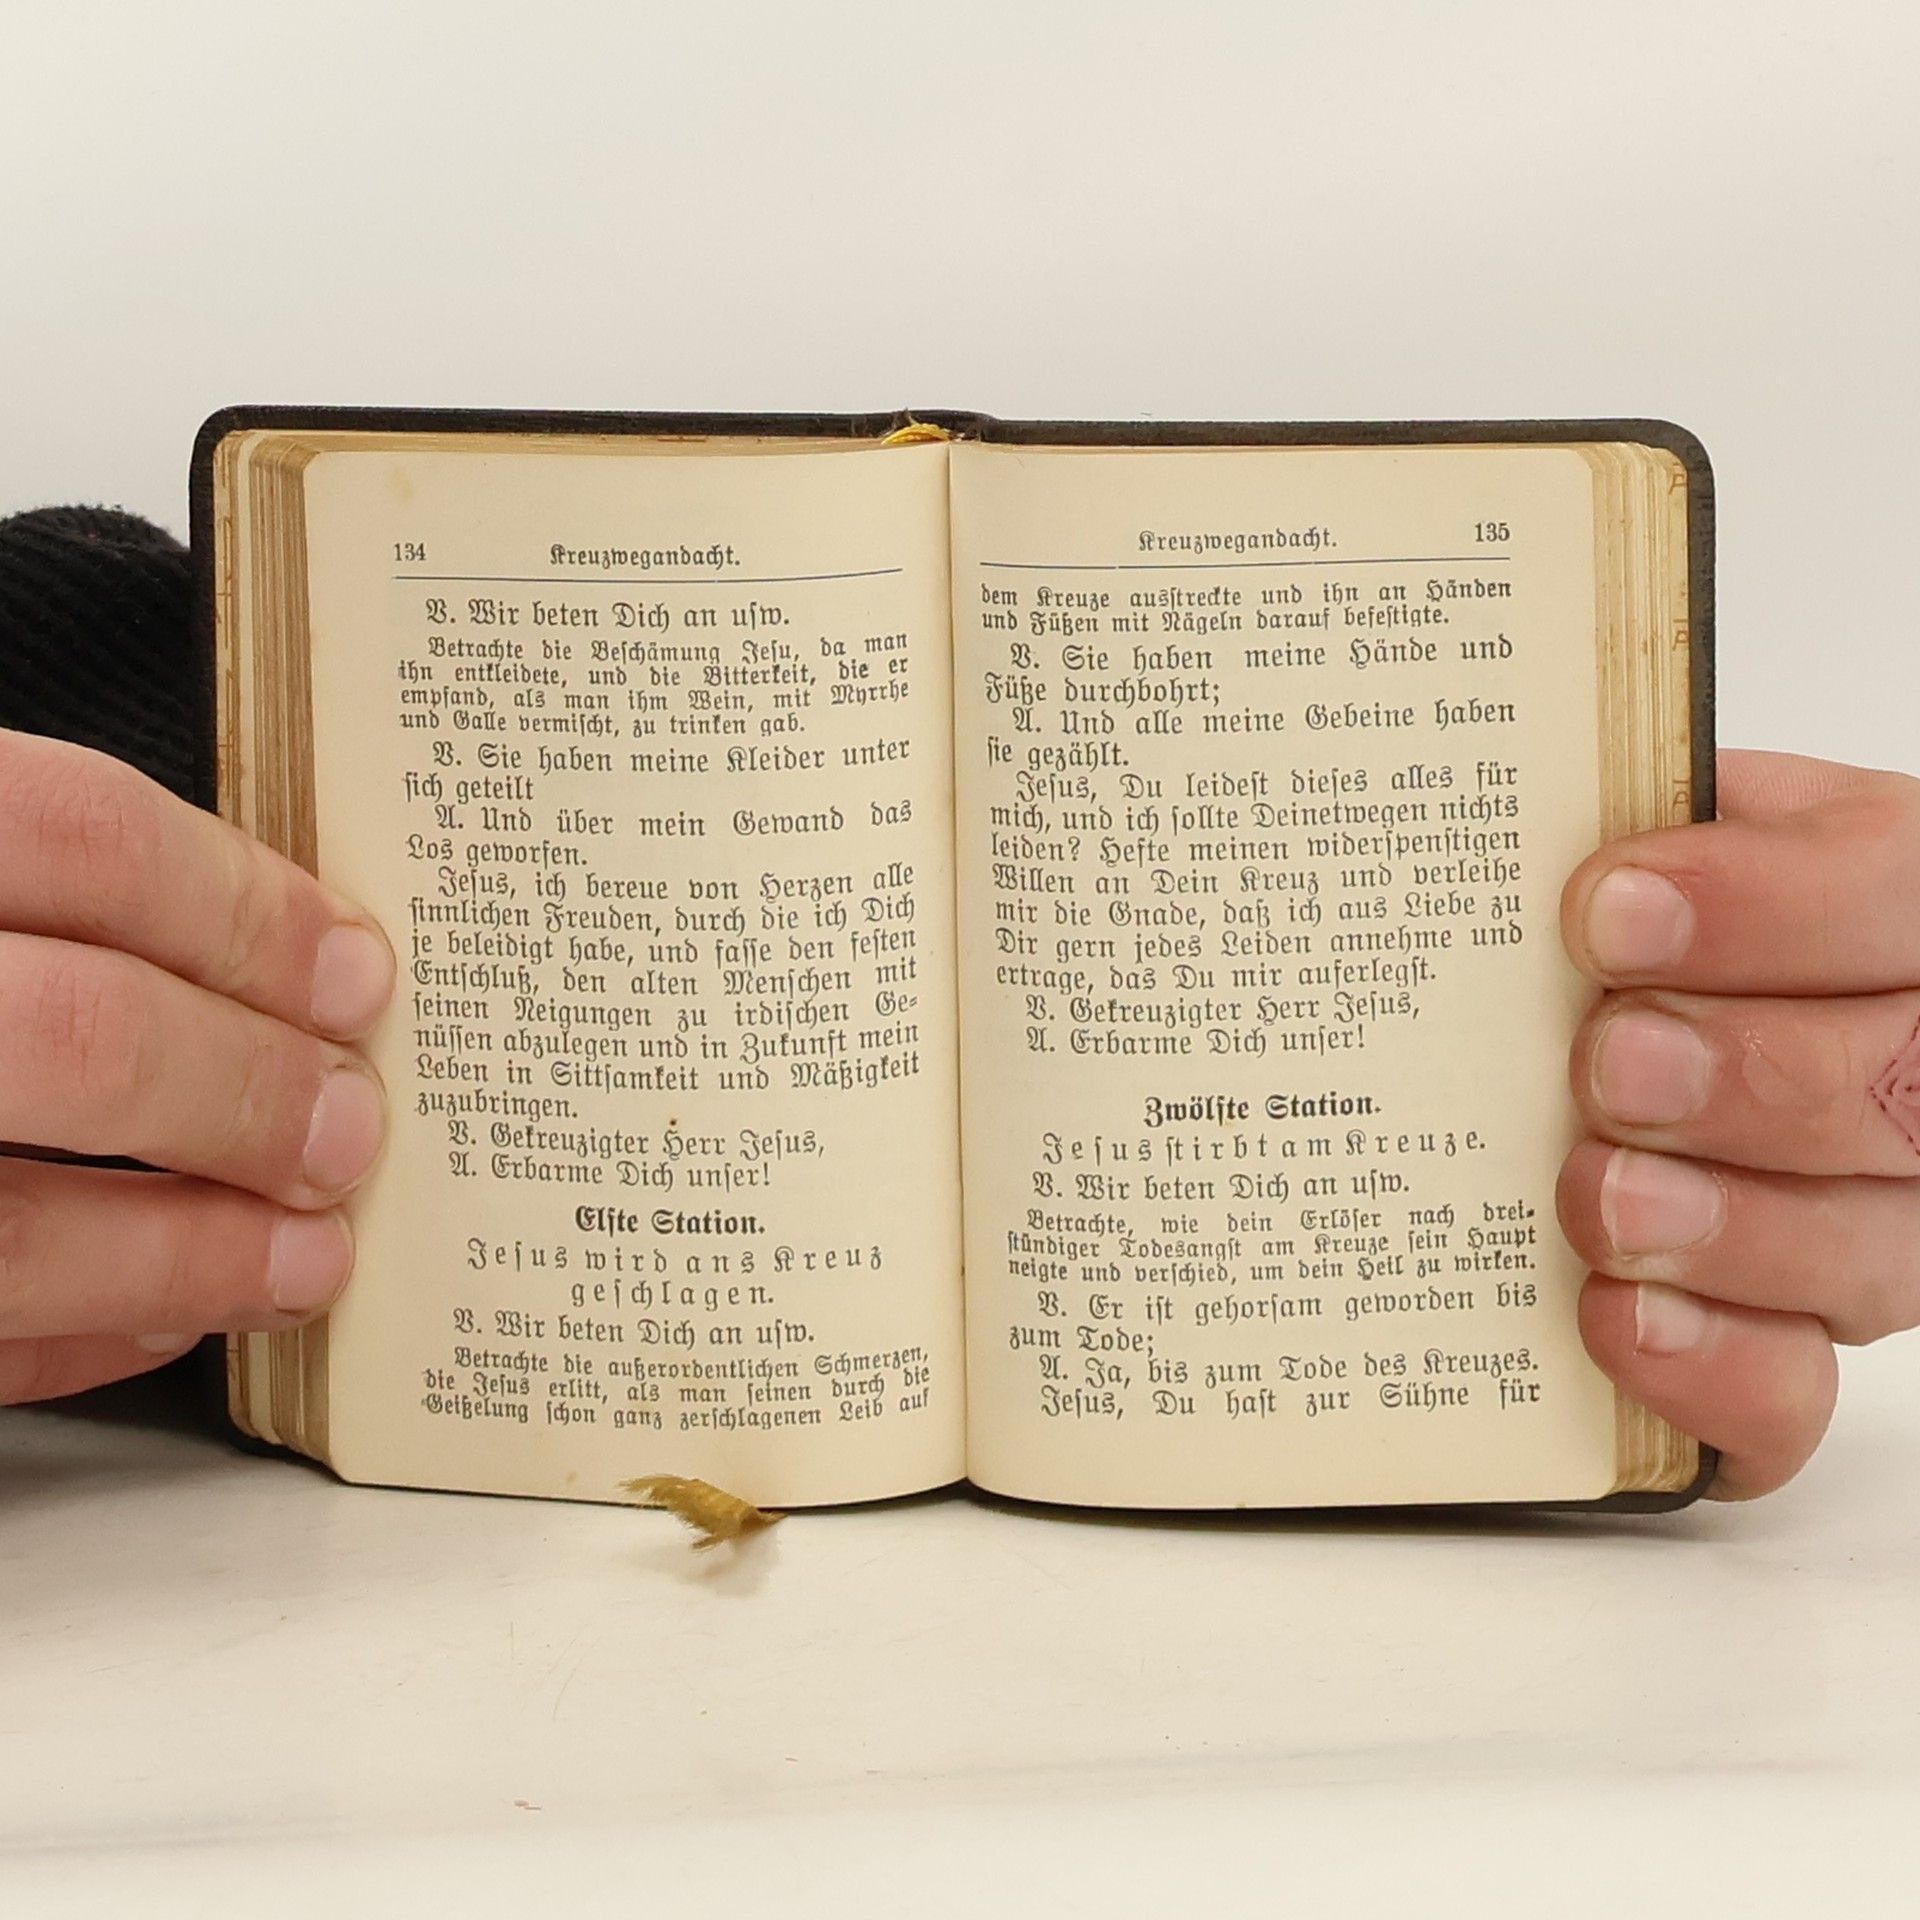 134 Kreuzwegandacht.
V. Wir beten Dich an uſw.
Betrachte die Beſchämung Jeſu, da man
ihn entkleidete, und die Bitterkeit, die er
empfand, als man ihm Wein, mit Myrrhe
und Galle vermiſcht, zu trinken gab.
V. Sie haben meine Kleider unter
ſich geteilt
A. Und über mein Gewand das
Los geworfen.
Jeſus, ich bereue von Herzen alle
ſinnlichen Freuden, durch die ich Dich
je beleidigt habe, und faſſe den feſten
Entſchluß, den alten Menſchen mit
ſeinen Neigungen zu irdiſchen Ge=
nüſſen abzulegen und in Zukunft mein
Leben in Sittſamkeit und Mäßigkeit
zuzubringen.
V. Gekreuzigter Herr Jeſus,
A. Erbarme Dich unſer!
Elfte Station.
Jeſus wird ans Kreuz
geſchlagen.
V. Wir beten Dich an uſw.
Betrachte die außerordentlichen Schmerzen,
die Jeſus erlitt, als man ſeinen durch die
Geißelung ſchon ganz zerſchlagenen Leib auf
Kreuzwegandacht. 135
dem Kreuze ausſtreckte und ihn an Händen
und Füßen mit Nägeln darauf befeſtigte.
V. Sie haben meine Hände und
Füße durchbohrt;
A. Und alle meine Gebeine haben
ſie gezählt.
Jeſus, Du leideſt dieſes alles für
mich, und ich ſollte Deinetwegen nichts
leiden? Hefte meinen widerſpenſtigen
Willen an Dein Kreuz und verleihe
mir die Gnade, daß ich aus Liebe zu
Dir gern jedes Leiden annehme und
ertrage, das Du mir auferlegſt.
V. Gekreuzigter Herr Jeſus,
A. Erbarme Dich unſer!
Zwölfte Station.
Jeſus ſtirbt am Kreuze.
V. Wir beten Dich an uſw.
Betrachte, wie dein Erlöſer nach drei=
ſtündiger Todesangſt am Kreuze ſein Haupt
neigte und verſchied, um dein Heil zu wirken.
V. Er iſt gehorſam geworden bis
zum Tode;
A. Ja, bis zum Tode des Kreuzes.
Jeſus, Du haſt zur Sühne für